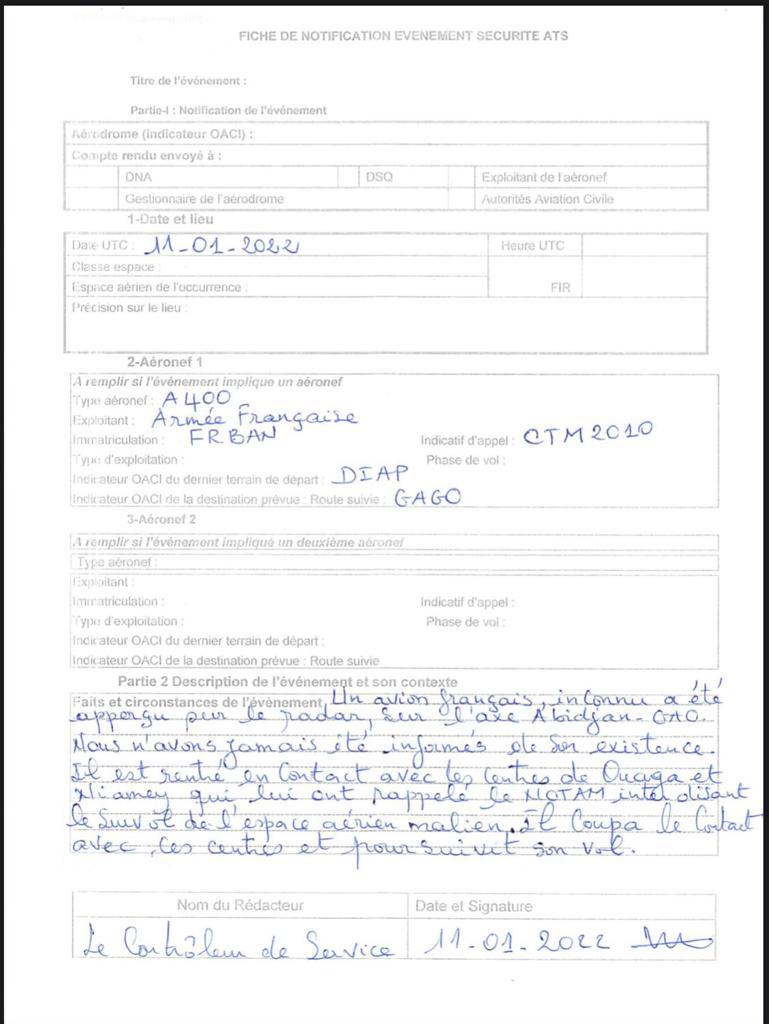 FICHE DE NOTIFICATION EVENEMENT SECURITE ATS
Titre de l'événement :
Partie-I : Notification de l'événement
Aérodrome (indicateur OACI) :
Compte rendu envoyé à :
DNA DSQ Exploitant de l'aéronef
Gestionnaire de l'aérodrome Autorités Aviation Civile
1-Date et lieu
Date UTC : 11-01-2022 Heure UTC
Classe espace :
Espace aérien de l'occurrence : FIR
Précision sur le lieu :
2-Aéronef 1
A remplir si l'événement implique un aéronef
Type aéronef : A400
Exploitant : Armée Française
Immatriculation : FRBAN Indicatif d'appel : CTM2010
Type d'exploitation : Phase de vol :
Indicateur OACI du dernier terrain de départ : DIAP
Indicateur OACI de la destination prévue : Route suivie : GAGO
3-Aéronef 2
A remplir si l'événement impliqué un deuxième aéronef
Type aéronef :
Exploitant :
Immatriculation : Indicatif d'appel :
Type d'exploitation : Phase de vol :
Indicateur OACI du dernier terrain de départ :
Indicateur OACI de la destination prévue : Route suivie
Partie 2 Description de l'événement et son contexte
Faits et circonstances de l'évènement Un avion français, inconnu a été
apperçu par le radar, sur l'axe Abidjan-GAO.
Nous n'avons jamais été informés de son existence.
Il est rentré en Contact avec les centres de Ouaga et
Niamey qui lui ont rappelé le NOTAM interdisant
le survol de l'espace aérien malien. Il Coupa le Contact
avec ces centres et poursuivit son vol.
Nom du Rédacteur Date et Signature
Le Contrôleur de Service 11-01-2022